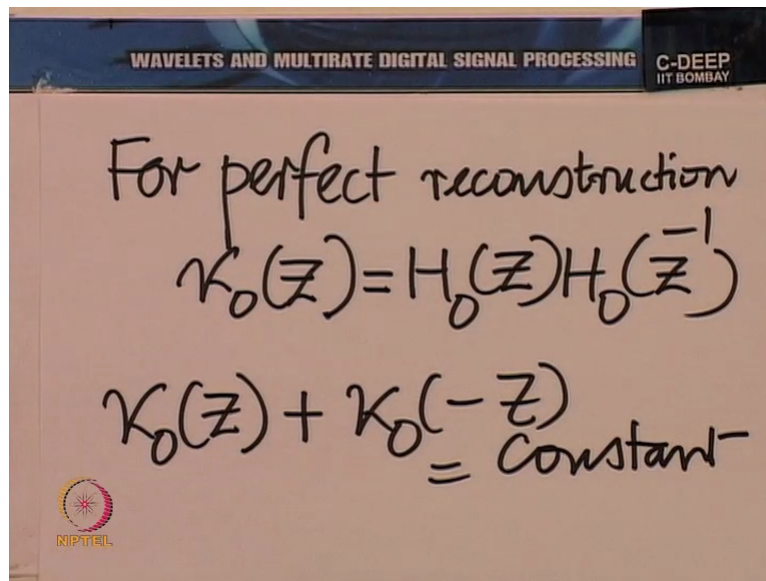 WAVELETS AND MULTIRATE DIGITAL SIGNAL PROCESSING
C-DEEP
IIT BOMBAY
For perfect reconstruction
κ₀(Z) = H₀(Z)H₀(Z⁻¹)
κ₀(Z) + κ₀(-Z)
= constant
NPTEL